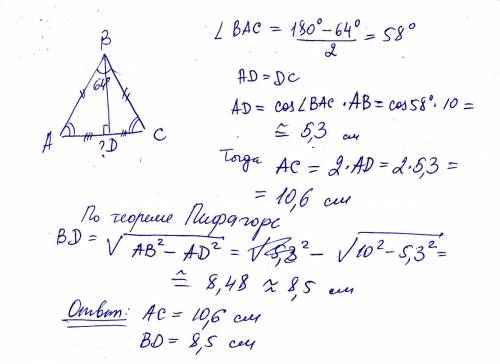 B
64°
A
?D
C
∠ BAC = (180° - 64°)/2 = 58°
AD = DC
AD = cos∠BAC · AB = cos58° · 10 =
≅ 5,3 см
Тогда AC = 2·AD = 2·5,3 =
= 10,6 см
По теореме Пифагора
BD = √(AB² - AD²) = - √(10² - 5,3²) =
≅ 8,48 ≈ 8,5 см
Ответ: AC = 10,6 см
BD = 8,5 см